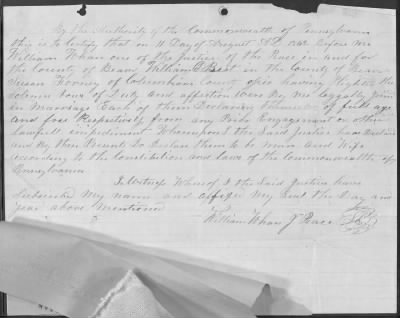 By the Authority of the Commonwealth of Pennsylvania
this is to Certify that on 11 Day of August AD before me
William Whan one of the Justices of the Peace in and for
the County of Beaver William Best in the County of
Susan of Columbian County ohio having the
Solemn Vows of Duty and affection were By me Leagally Joined
in Marriage Each of them Declaring themselves of full age
and free Respectively from any Prior Engagement or other
Lawfull impediment Whereupon I the Said Justice have
and By these Presents Do Declare them to be man and Wife
according to the Constitution and laws of the Commonwealth of
Pennsylvania
In Witness Whereof I the Said Justice have
Subscribed My name and affixed My Seal the Day and
year above mentioned
William Whan J Peace